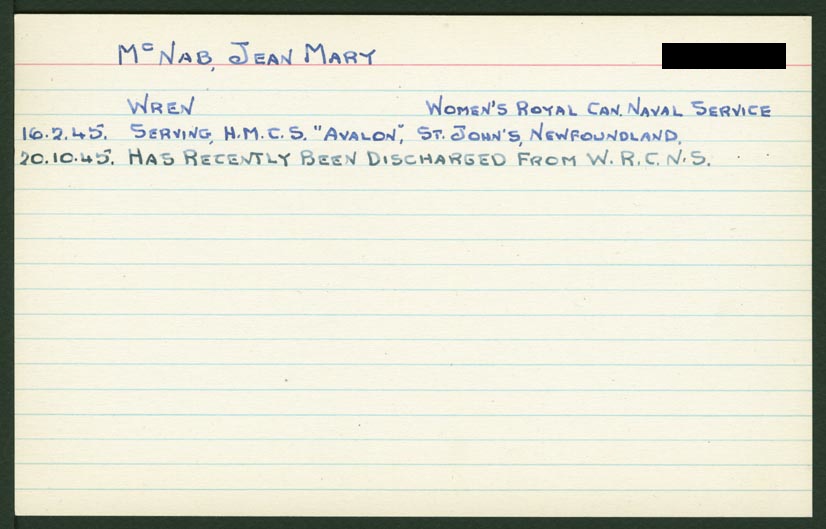 McNAB, JEAN MARY
WREN WOMEN'S ROYAL CAN. NAVAL SERVICE
16.2.45. SERVING, H.M.C.S. "AVALON", ST. JOHN'S, NEWFOUNDLAND.
20.10.45. HAS RECENTLY BEEN DISCHARGED FROM W.R.C.N.S.